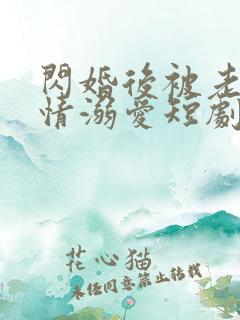 閃婚後被老
情溺愛短劇
花心猫
未经同意禁止转载